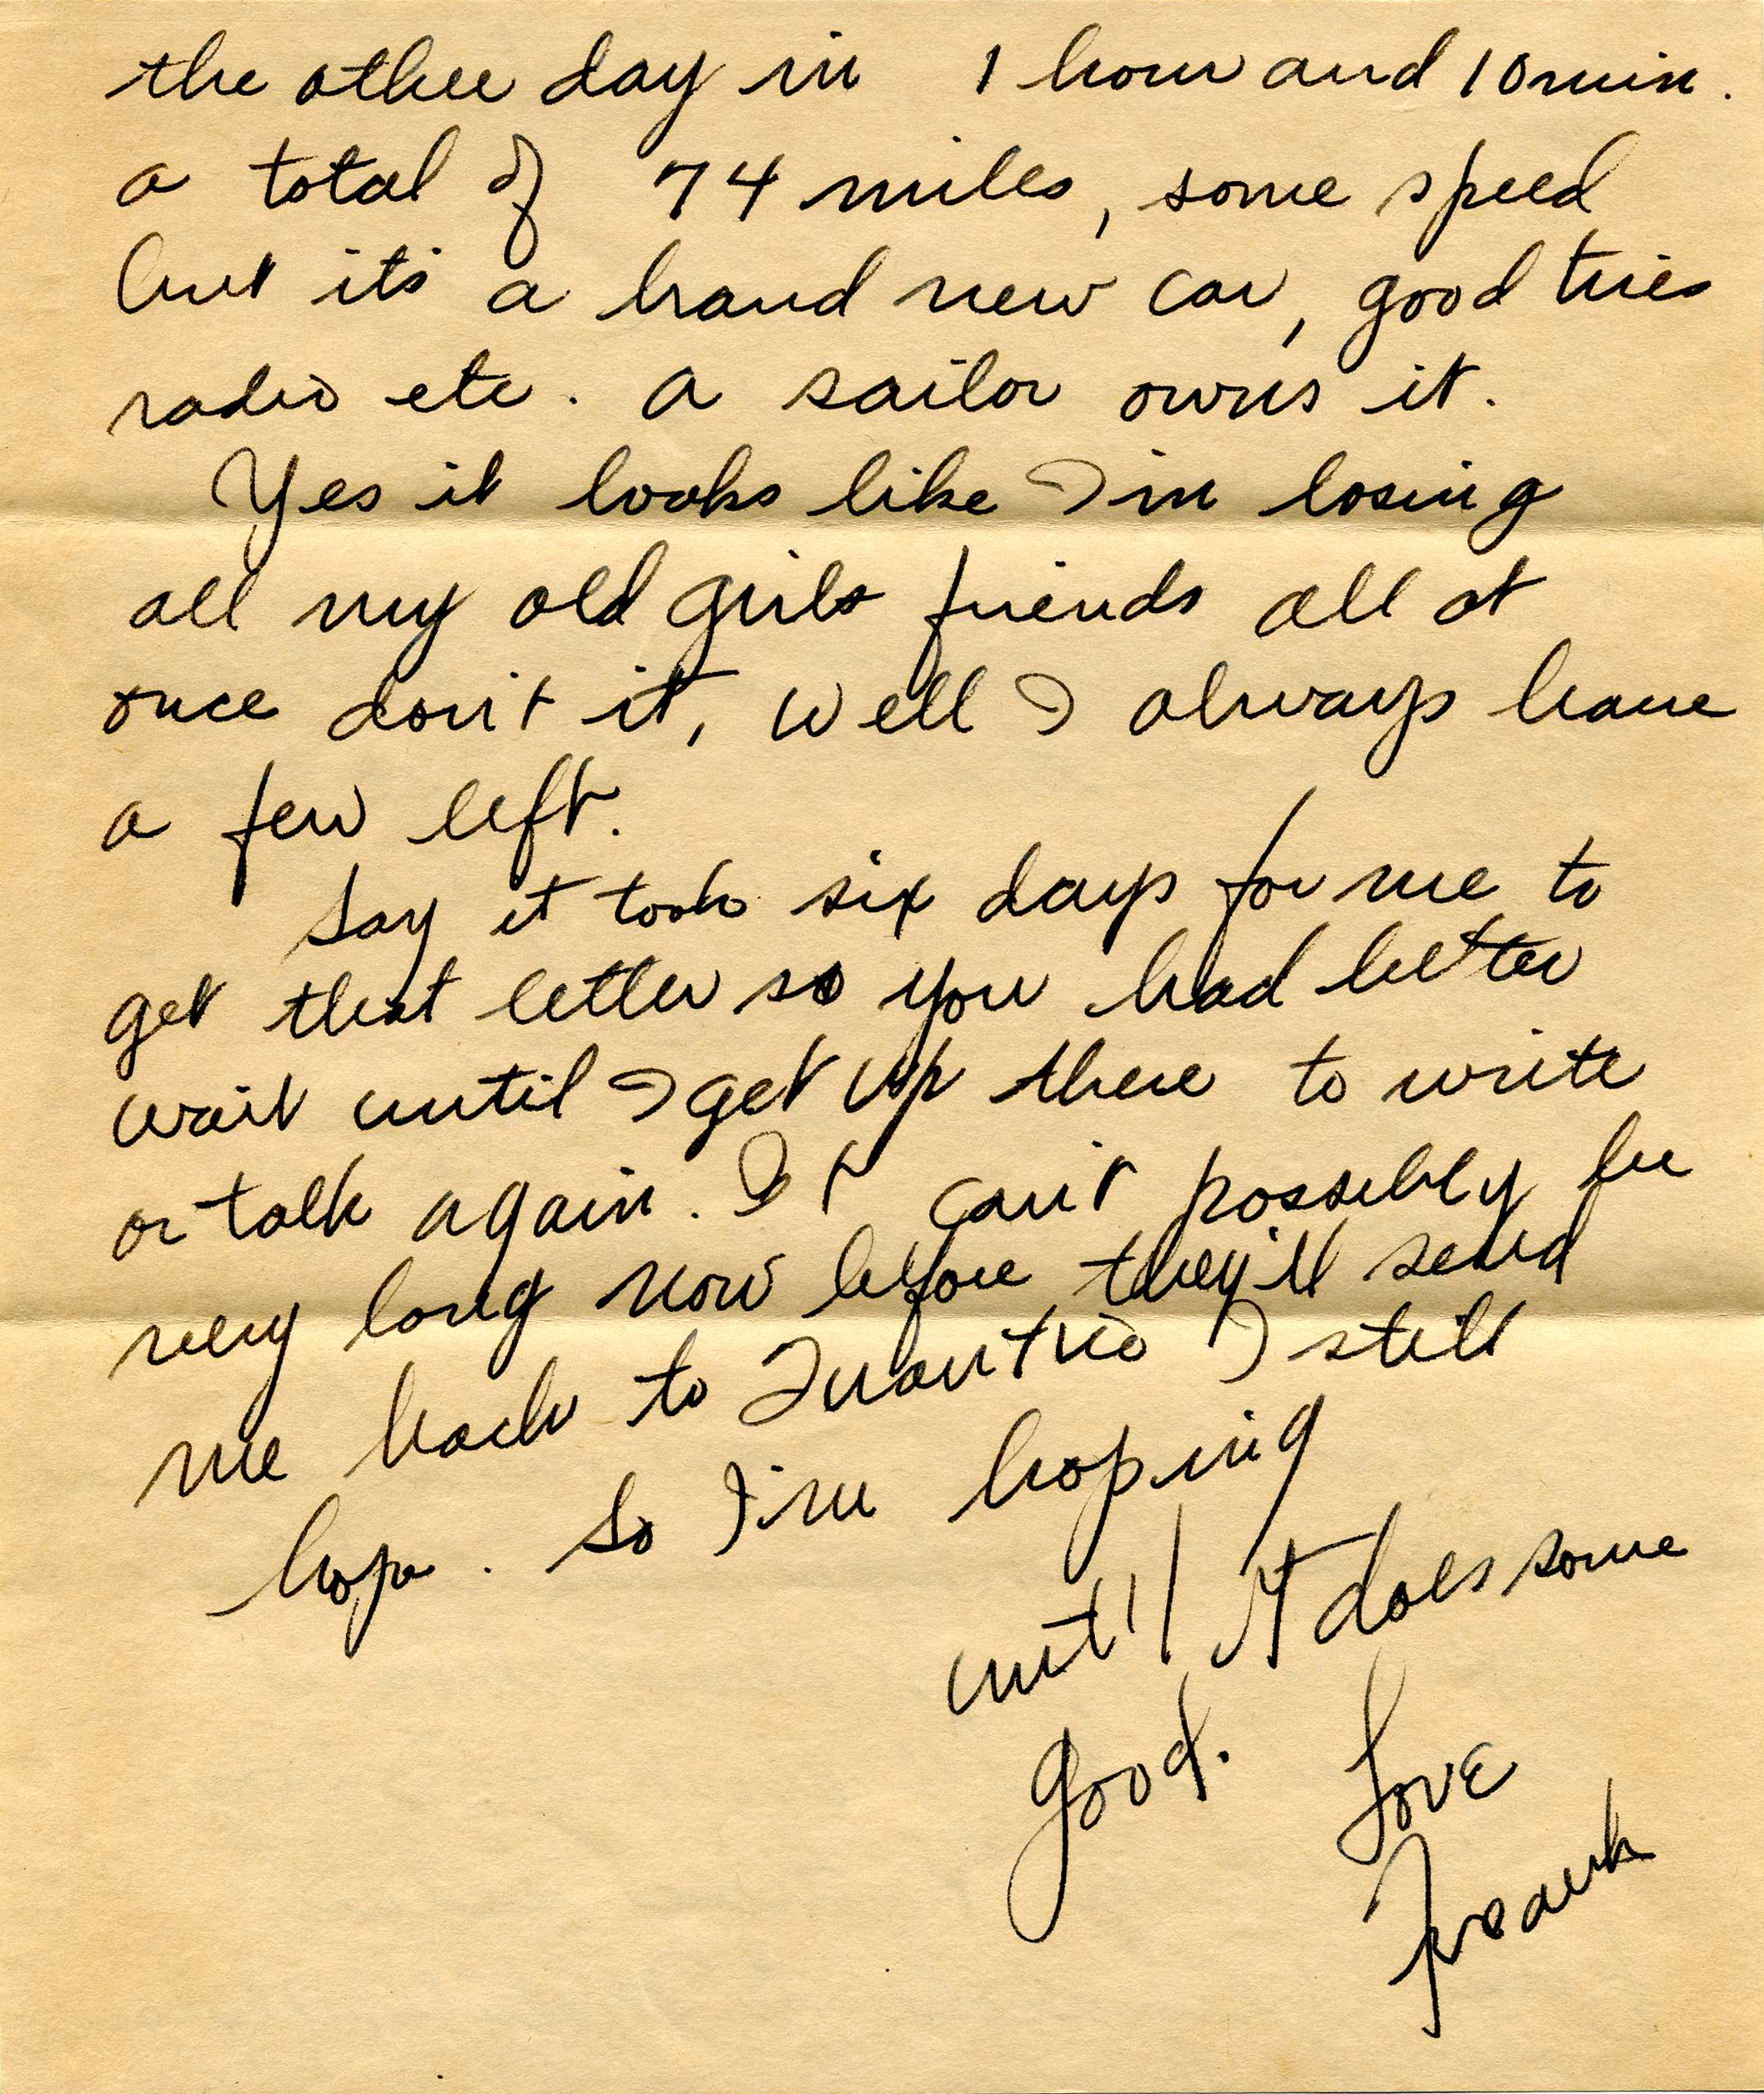 the other day in 1 hour and 10 min.
a total of 74 miles, some speed
but it's a brand new car, good tires
radio etc. a sailor owns it.
Yes it looks like I'm losing
all my old girls friends all at
once don't it, well I always have
a few left.
Say it took six days for me to
get that letter so you had better
wait until I get up there to write
or talk again. It can't possibly be
very long now before they'll send
me back to Quantico I still
hope. So I'm hoping
until it does some
good. Love
Frank